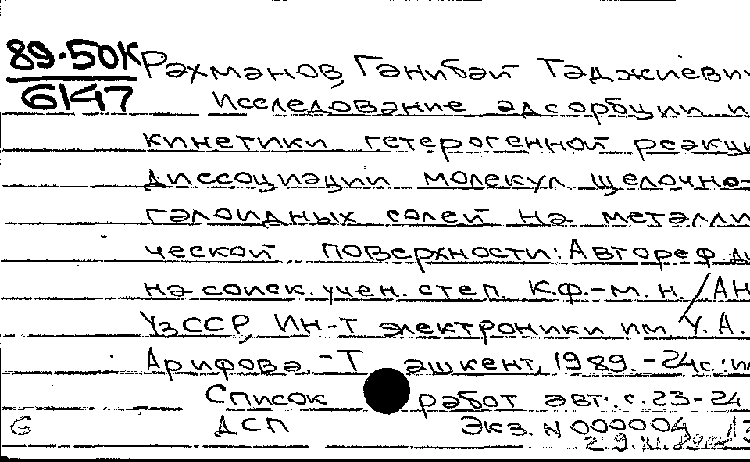 89-50К Рахманов, Ганибай Таджиевич
6147
Исследование адсорбции и
кинетики гетерогенной реакци
диссоциации молекул щелочно-
галоидных солей на металли
ческой поверхности: Автореф. ди
на соиск. учен. степ. к.ф.-м.н. / АН
УзССР, Ин-т электроники им. У. А.
Арифова. - Ташкент, 1989. - 24с.: и
Список работ авт.: с. 23-24
ДСП Экз. N 000004
6